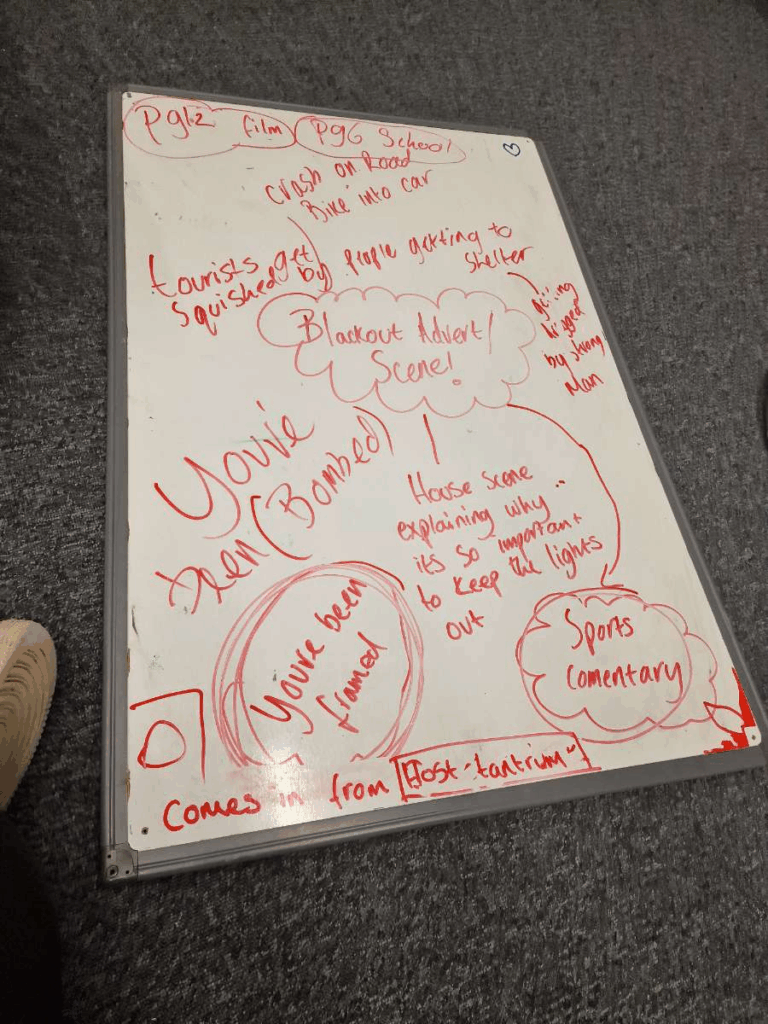 Pg12 film
Pg6 School
Crash on Road
Bike into car
tourists get
squished by
People getting to
shelter
getting
by strong
Man
Blackout Advert/
Scene!
You've
been (Bombed)
House scene
explaining why
its so important
to keep the lights
out
You're been
framed
Sports
Comentary
Comes in from Host-tantrium"